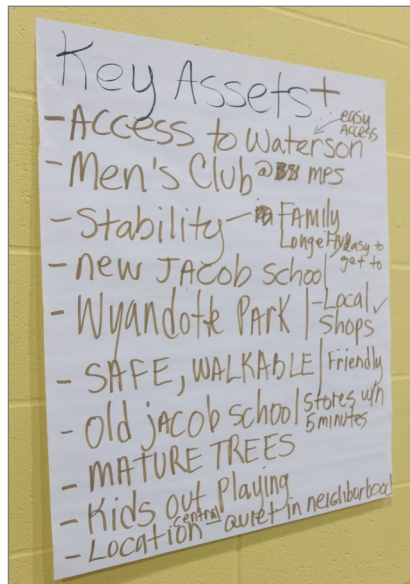 Key Assets +
- Access to Waterson
easy
Access
- Men's Club @ MPS
- Stability - Family
Longevity
- new Jacob school
easy to
get to
- Wyandotte Park
- Local
Shops
- SAFE, WALKABLE
Friendly
- Old jacob school
stores w/n
5 minutes
- MATURE TREES
- Kids out Playing
- Location - central
Quiet in neighborhood